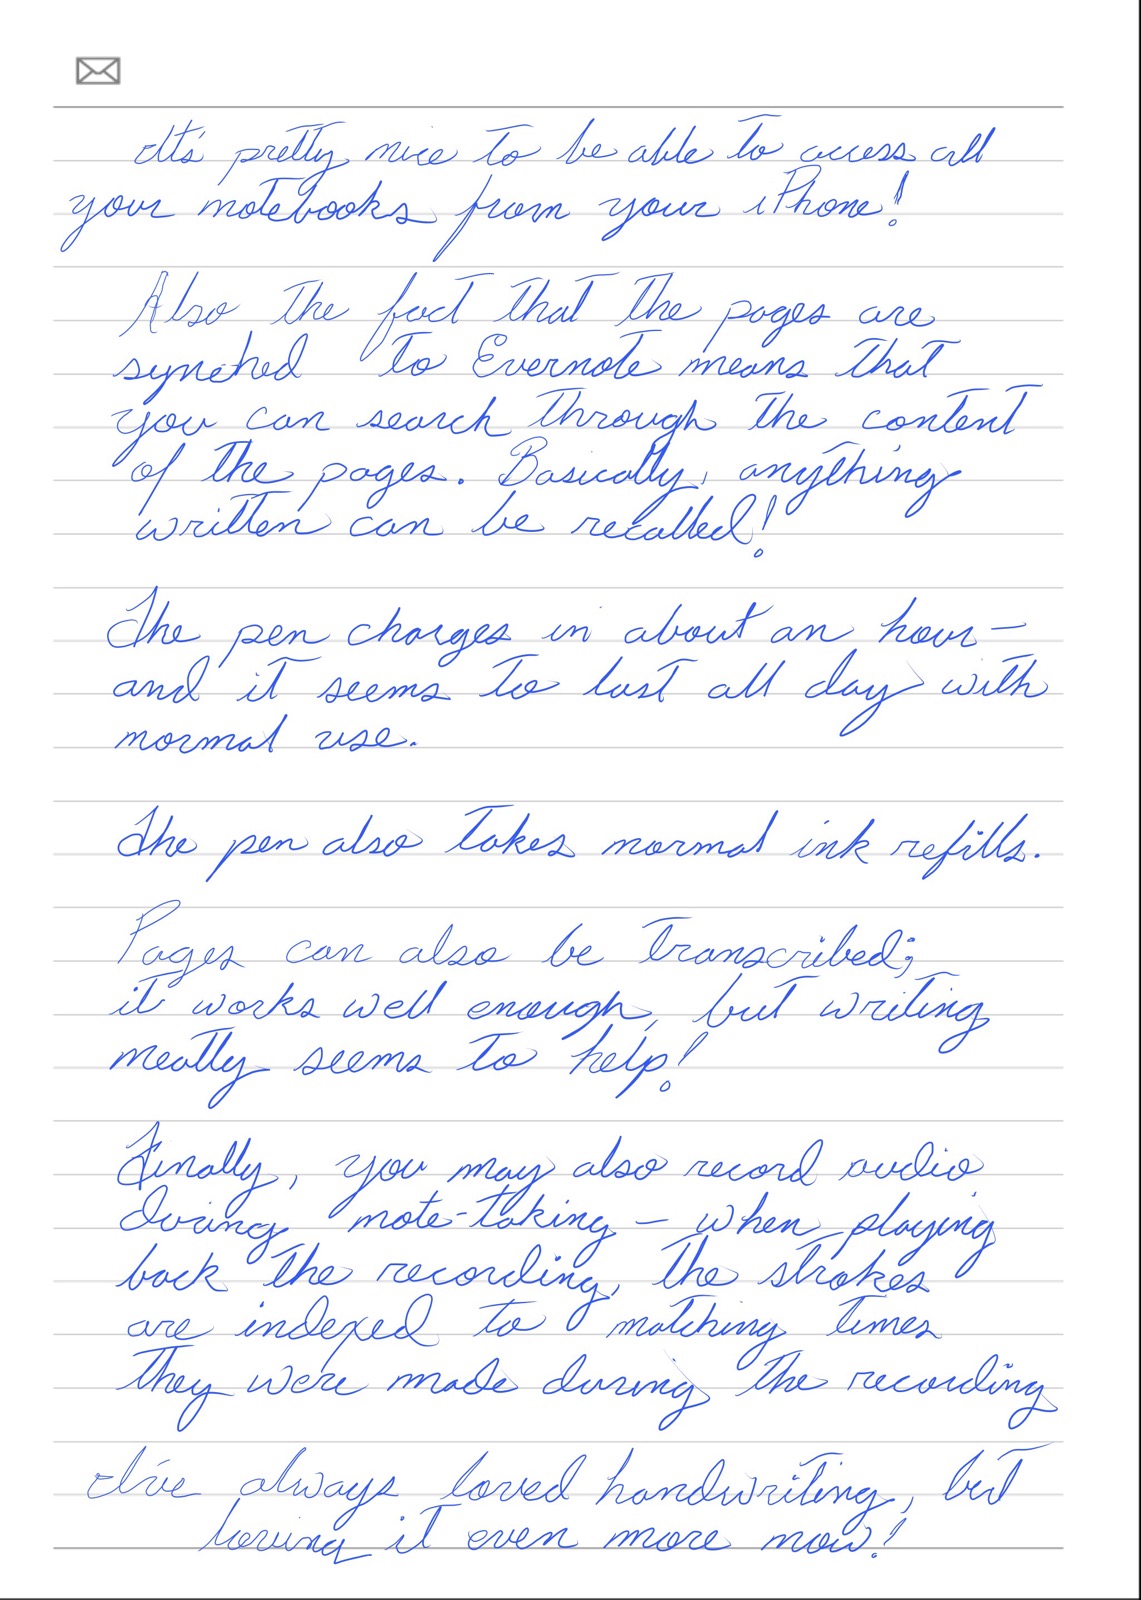 It's pretty nice to be able to access all
your notebooks from your iPhone!
Also the fact that the pages are
synched to Evernote means that
you can search through the content
of the pages. Basically, anything
written can be recalled!
The pen charges in about an hour—
and it seems to last all day with
normal use.
The pen also takes normal ink refills.
Pages can also be transcribed;
it works well enough, but writing
neatly seems to help!
Finally, you may also record audio
during note-taking — when playing
back the recording, the strokes
are indexed to matching times
they were made during the recording
I've always loved handwriting, but
loving it even more now!